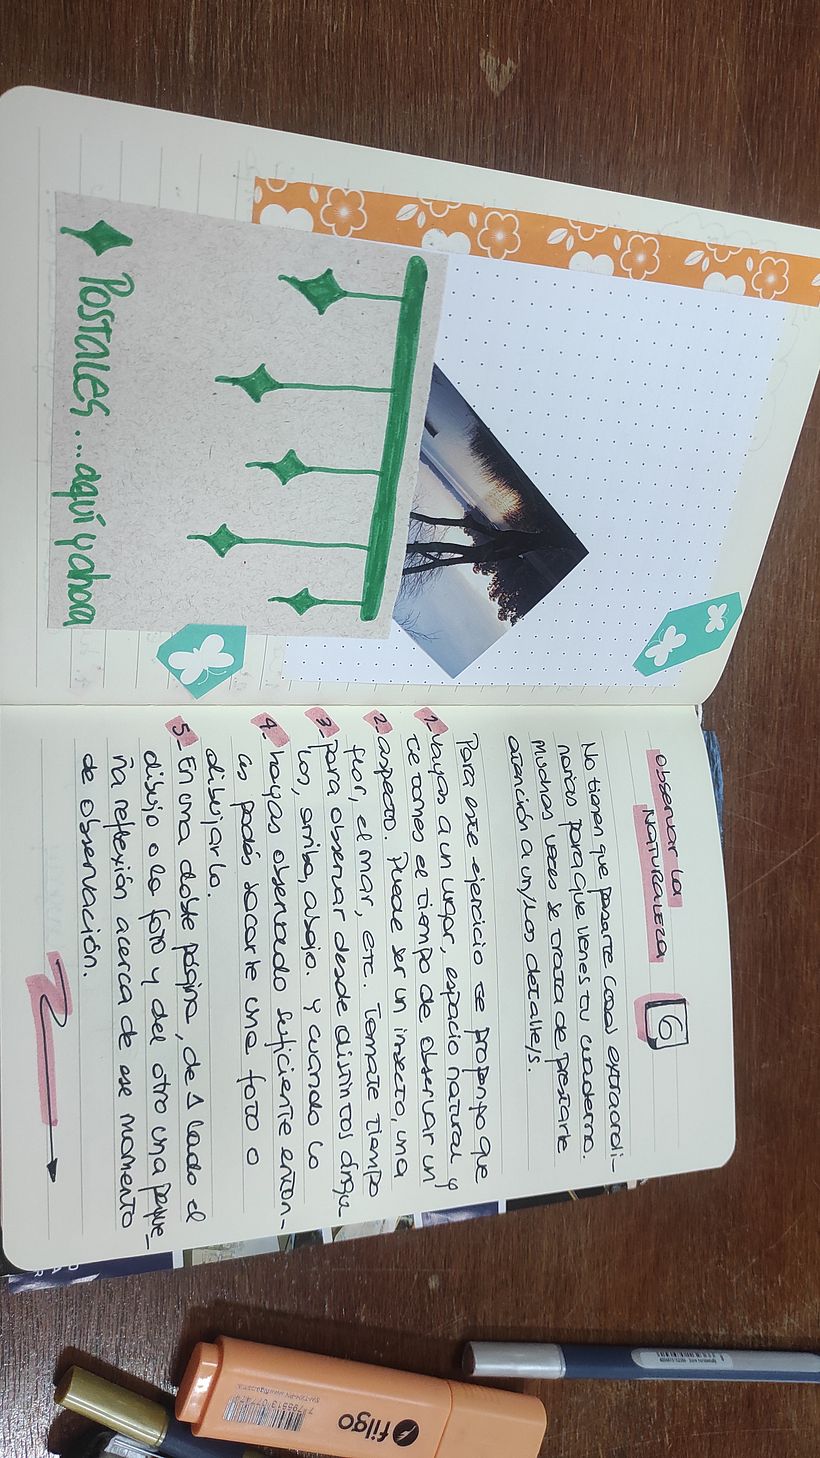 Postales... aquí y ahora
Observar la
Naturaleza
6
No tienen que pasarte cosas extraordi-
narias para que llenes tu cuaderno.
Muchas veces se trata de prestarle
atención a un/los detalle/s.
Para este ejercicio te propongo que
1- Vayas a un lugar, espacio natural y
te tomes el tiempo de observar un
2- aspecto. Puede ser un insecto, una
flor, el mar, etc. Tomate tiempo
3- para observar desde distintos ángu
los, arriba, abajo. Y cuando lo
4- hayas observado suficiente enton-
ces podés sacarle una foto o
dibujarlo.
5- En una doble página, de 1 lado el
dibujo o la foto y del otro una peque_
ña reflexión acerca de ese momento
de observación.
filgo